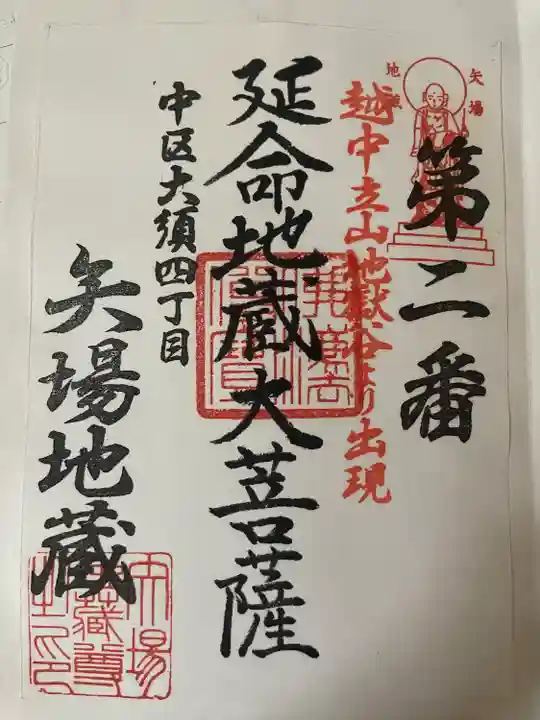 矢場
地蔵
第二番
越中立山地嶽谷より出現
延命地蔵大菩薩
中区大須四丁目
矢場地蔵